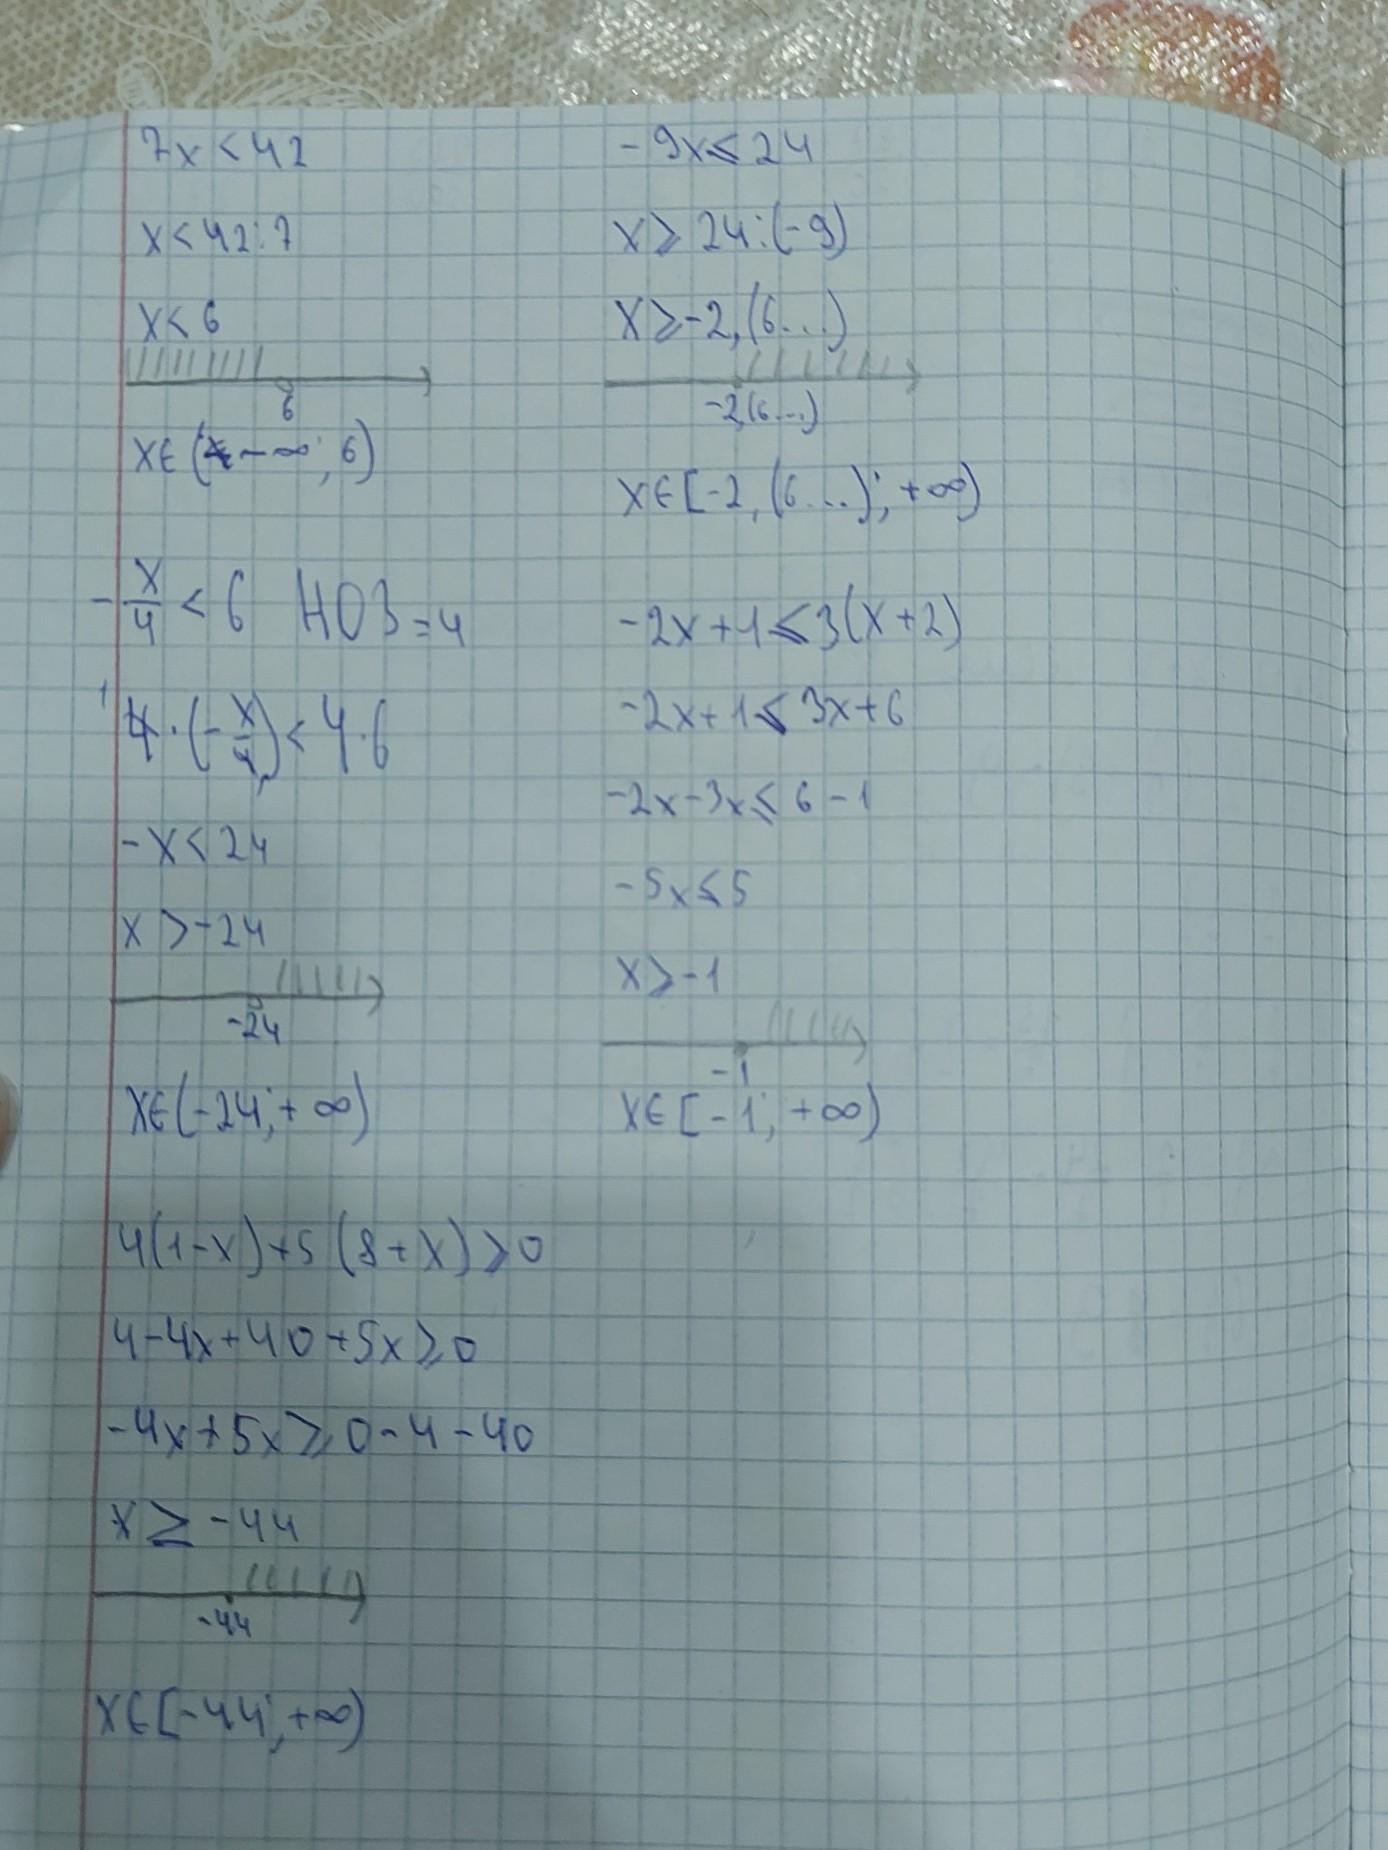 7x < 42
x < 42:7
x < 6
6
x∈(-∞; 6)
-x/4 < 6 НОЗ=4
4·(-x/4) < 4·6
-x < 24
x > -24
-24
x∈(-24; +∞)
4(1-x)+5(8+x) ⩾ 0
4-4x+40+5x ⩾ 0
-4x+5x ⩾ 0-4-40
x ≥ -44
-44
x∈[-44; +∞)
-9x ⩽ 24
x ⩾ 24:(-9)
x ⩾ -2,(6...)
-2,(6...)
x∈[-2,(6...); +∞)
-2x+1 ⩽ 3(x+2)
-2x+1 ⩽ 3x+6
-2x-3x ⩽ 6-1
-5x ⩽ 5
x ⩾ -1
-1
x∈[-1; +∞)